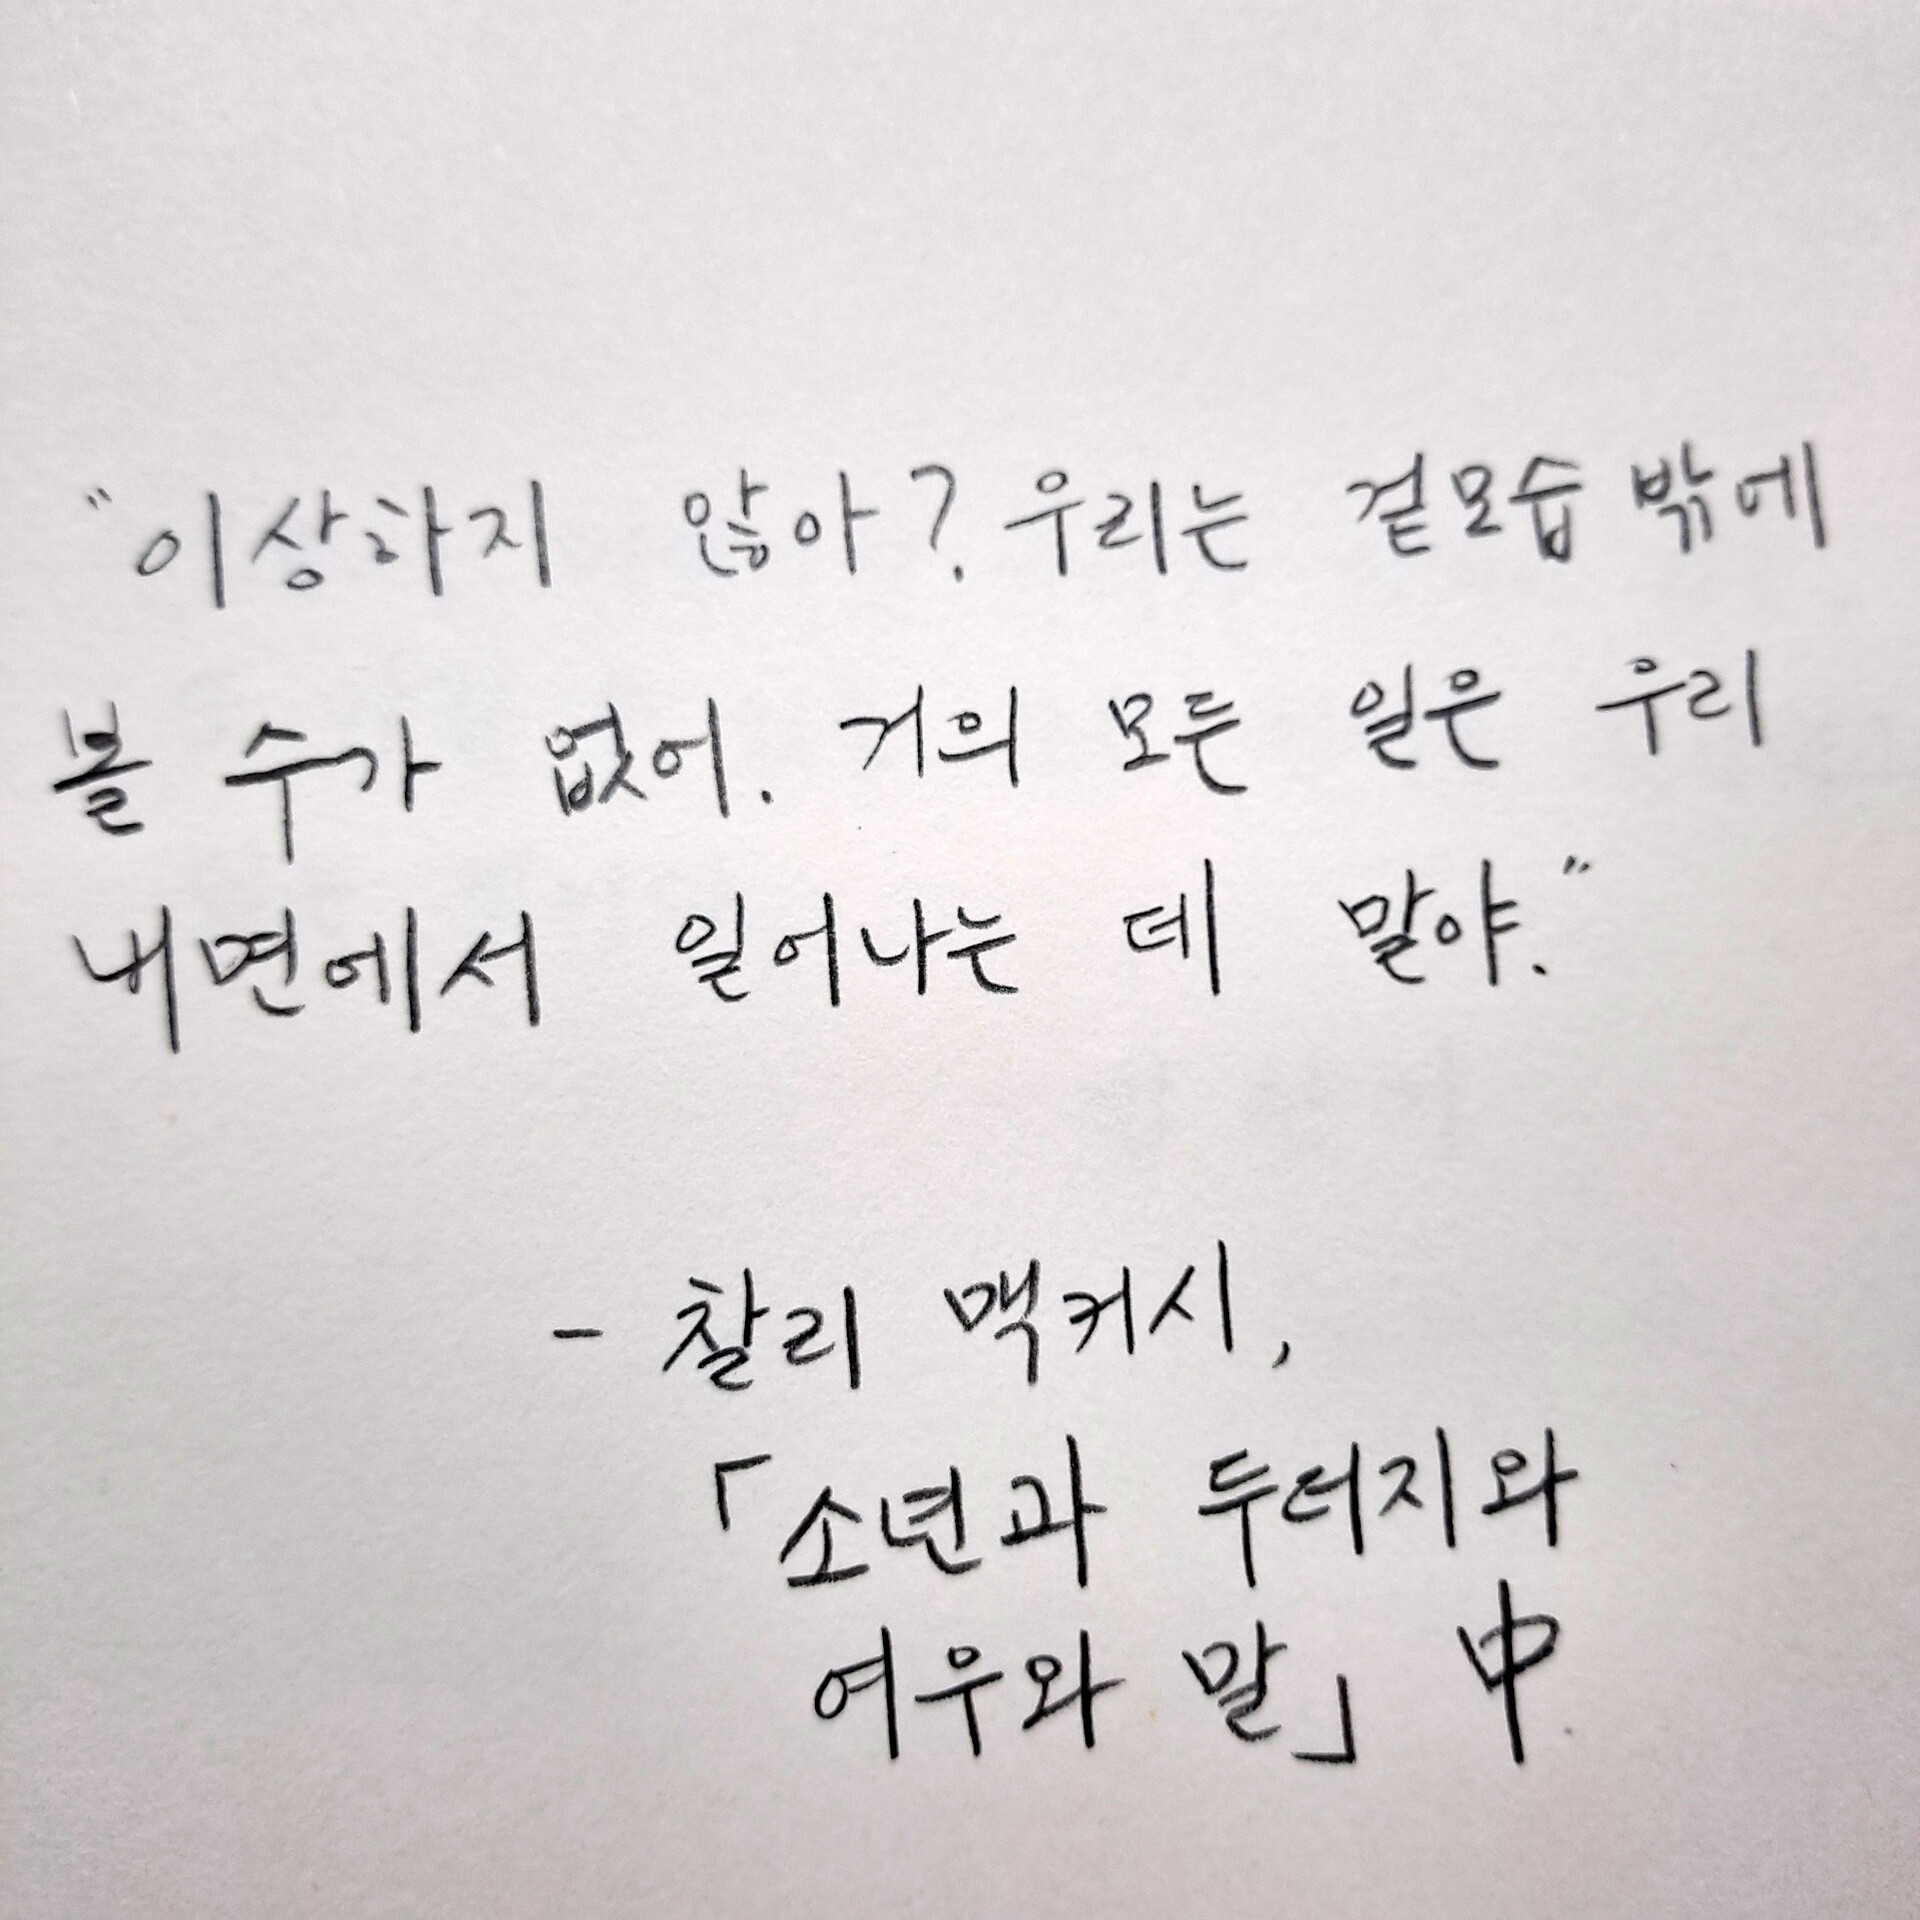 "이상하지 않아? 우리는 겉모습 밖에
볼 수가 없어. 거의 모든 일은 우리
내면에서 일어나는 데 말야."
- 찰리 맥커시,
「소년과 두더지와
여우와 말」 中